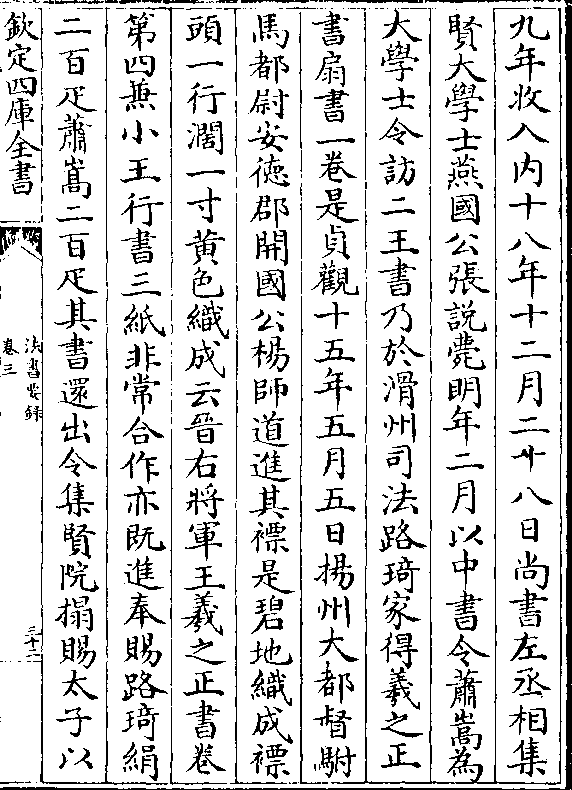 九年收入内十八年十二月二十八日尚書左丞相集
賢大學士燕國公張説薨明年二月以中書令蕭嵩為
大學士令訪二王書乃於滑州司法路琦家得羲之正
書扇書一卷是貞觀十五年五月五日揚州大都督駙
馬都尉安徳郡開國公楊師道進其褾是碧地織成褾
頭一行濶一寸黄色織成云晉右將軍王羲之正書卷
第四兼小王行書三紙非常合作亦既進奉賜路琦絹
二百疋蕭嵩二百疋其書還出令集賢院搨賜太子以
欽定四庫全書
法書要録
卷三
三十二